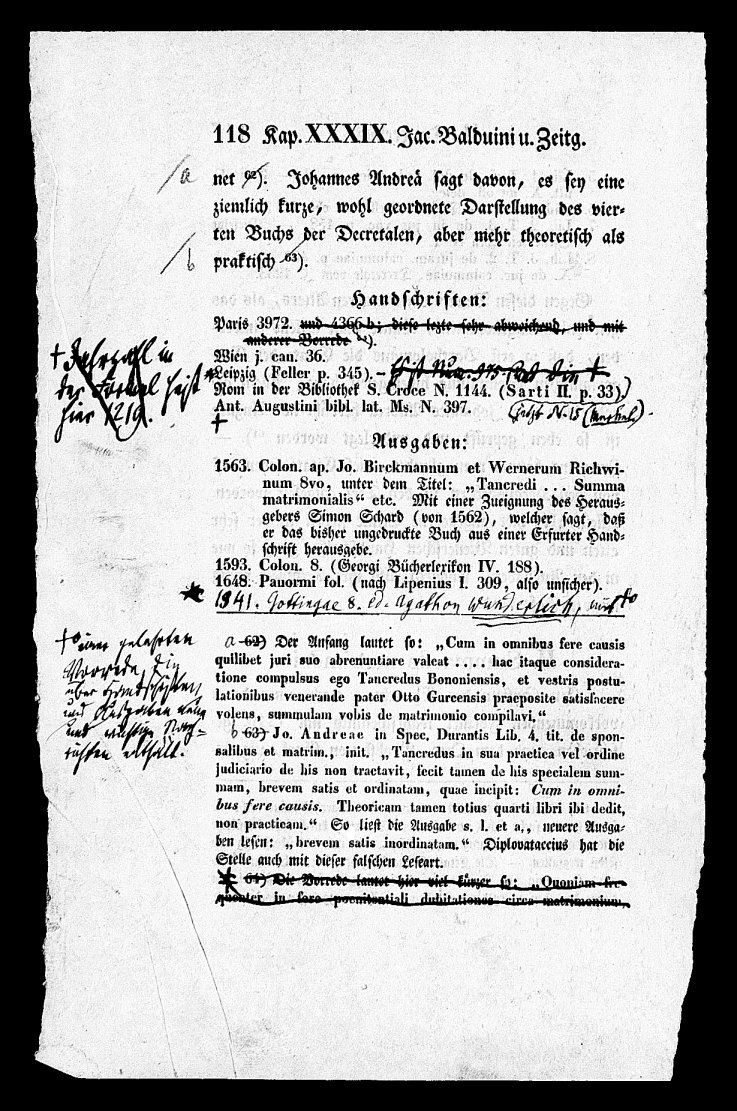 118 Kap. XXXIX. Jac. Balduini u. Zeitg.
/a net 62). Johannes Andreä sagt davon, es sey eine
ziemlich kurze, wohl geordnete Darstellung des vier-
ten Buchs der Decretalen, aber mehr theoretisch als
/b praktisch 63).
Handschriften:
Paris 3972. und 4366 b; diese lezte sehr abweichend, und mit
anderer Vorrede 64).
Wien j. can. 36.
Leipzig (Feller p. 345). –
Rom in der Bibliothek S. Croce N. 1144. (Sarti II. p. 33).
Ant. Augustini bibl. lat. Ms. N. 397. (jetzt N. 15 (Merkel)
+ Jahrzahl in
der Formel heißt
hier 1219.
+
Ausgaben:
1563. Colon. ap. Jo. Birckmannum et Wernerum Richwi-
num 8vo, unter dem Titel: „Tancredi ... Summa
matrimonialis“ etc. Mit einer Zueignung des Heraus-
gebers Simon Schard (von 1562), welcher sagt, daß
er das bisher ungedruckte Buch aus einer Erfurter Hand-
schrift herausgebe.
1593. Colon. 8. (Georgi Bücherlexikon IV. 188).
1648. Panormi fol. (nach Lipenius I. 309, also unsicher).
1841. Gottingae 8. ed. Agathon Wunderlich, mit +o
+o einer gelehrten
Vorrede, die
über Handschriften
und Ausgaben neue
und wichtige Nach-
richten enthält.
a 62) Der Anfang lautet so: „Cum in omnibus fere causis
quilibet juri suo abrenuntiare valeat .... hac itaque considera-
tione compulsus ego Tancredus Bononiensis, et vestris postu-
lationibus venerande pater Otto Gurcensis praeposite satisfacere
volens, summulam vobis de matrimonio compilavi.“
b 63) Jo. Andreae in Spec. Durantis Lib. 4. tit. de spon-
salibus et matrim., init. „Tancredus in sua practica vel ordine
judiciario de his non tractavit, fecit tamen de his specialem sum-
mam, brevem satis et ordinatam, quae incipit: Cum in omni-
bus fere causis. Theoricam tamen totius quarti libri ibi dedit,
non practicam.“ So liest die Ausgabe s. l. et a., neuere Ausga-
ben lesen: „brevem satis inordinatam.“ Diplovataccius hat die
Stelle auch mit dieser falschen Leseart.
64) Die Vorrede lautet hier viel kürzer so: „Quoniam fre-
quenter in foro poenitentiali dubitationes circa matrimonium,